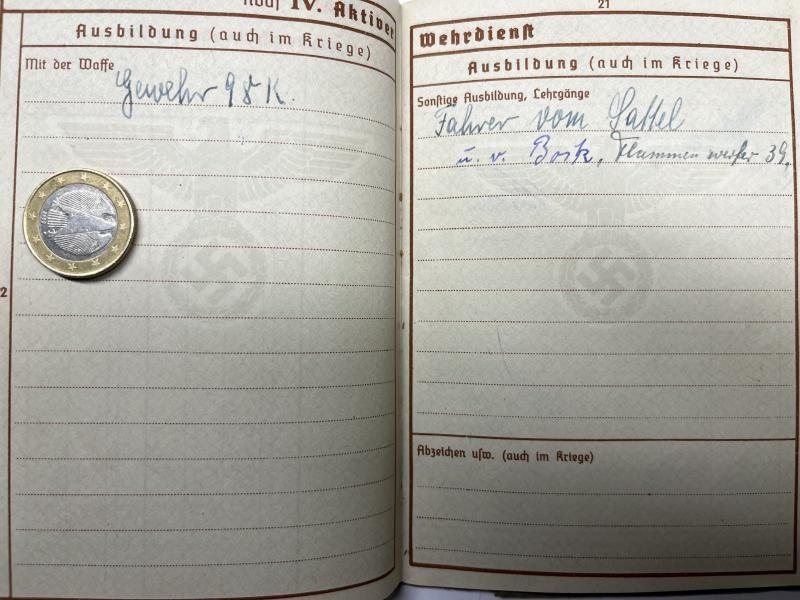 IV. Aktiver
Ausbildung (auch im Kriege)
Mit der Waffe
Gewehr 98K.
2
21
Wehrdienst
Ausbildung (auch im Kriege)
Sonstige Ausbildung, Lehrgänge
Fahrer vom Sattel
u. v. Bock, Flammenwerfer 39,
Abzeichen usw. (auch im Kriege)